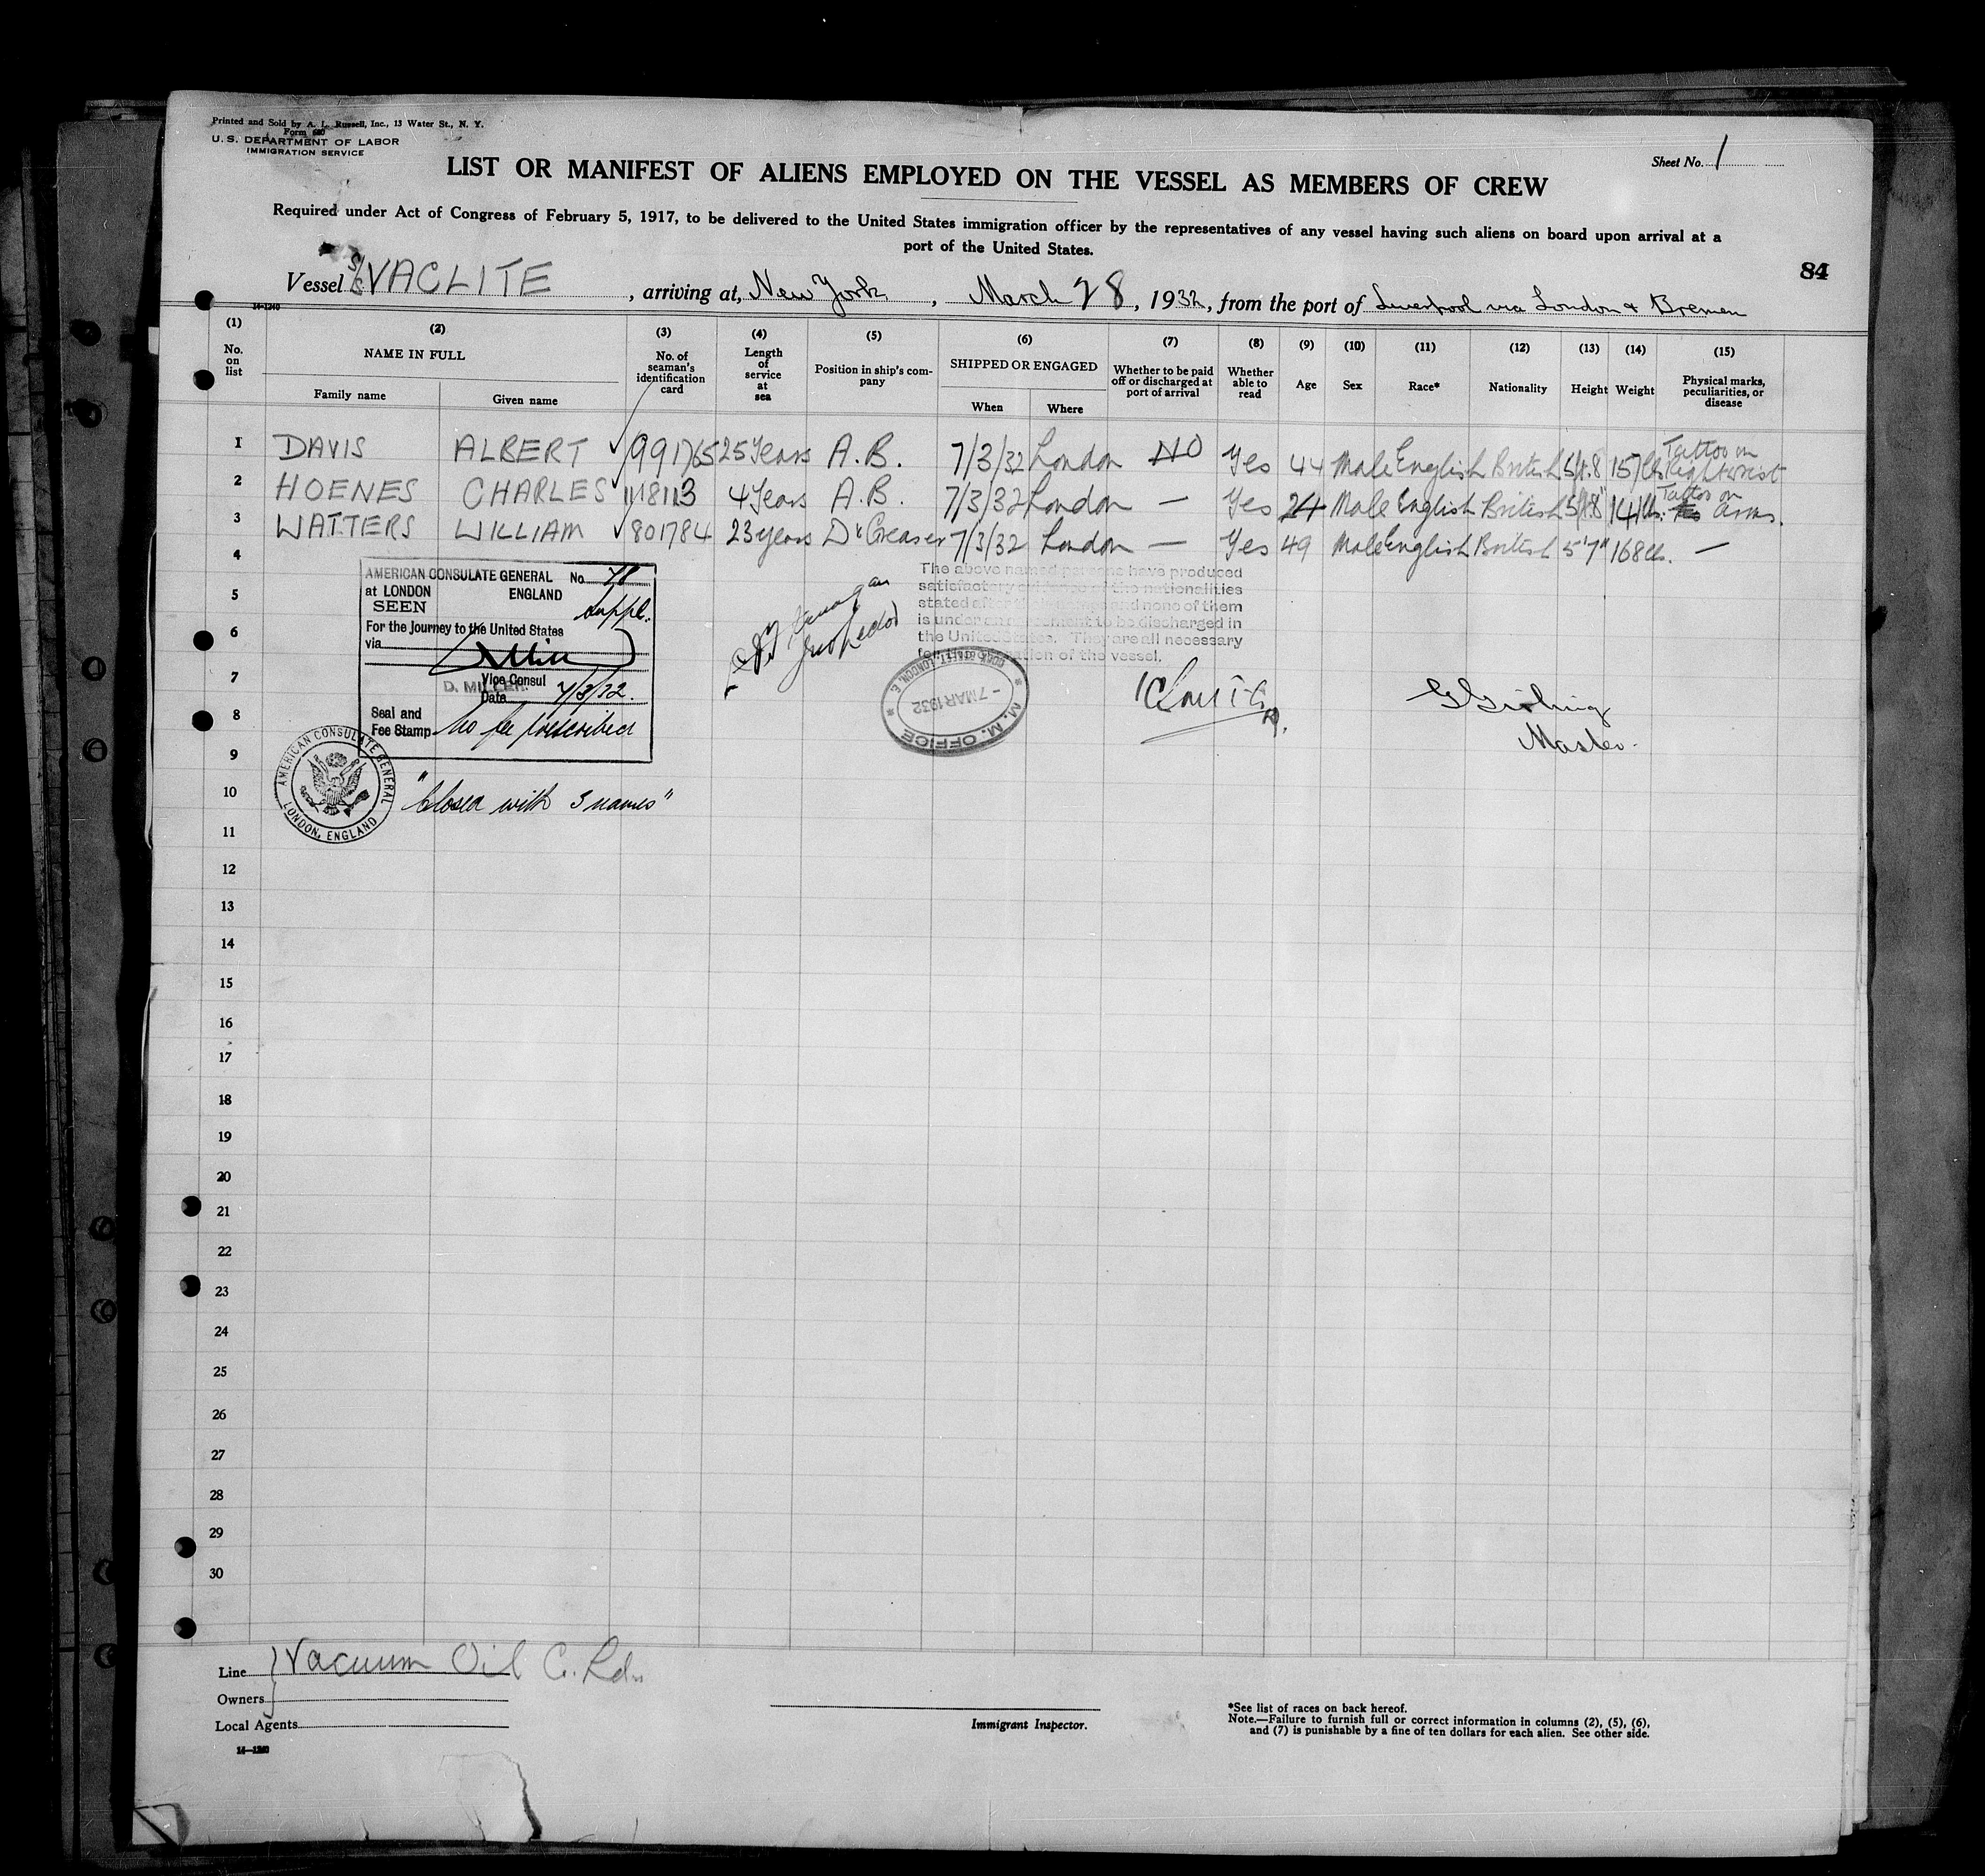 Printed and Sold by A. L. Russell, Inc., 13 Water St., N. Y.
Form 680
U. S. DEPARTMENT OF LABOR
IMMIGRATION SERVICE
Sheet No. 1
LIST OR MANIFEST OF ALIENS EMPLOYED ON THE VESSEL AS MEMBERS OF CREW
Required under Act of Congress of February 5, 1917, to be delivered to the United States immigration officer by the representatives of any vessel having such aliens on board upon arrival at a
port of the United States.
84
Vessel S/S VACLITE, arriving at, New York, March 28, 1932, from the port of Liverpool via London & Bremen
14-1240
(1) (2) (3) (4) (5) (6) (7) (8) (9) (10) (11) (12) (13) (14) (15)
No. on list NAME IN FULL No. of seaman's identification card Length of service at sea Position in ship's company SHIPPED OR ENGAGED Whether to be paid off or discharged at port of arrival Whether able to read Age Sex Race* Nationality Height Weight Physical marks, peculiarities, or disease
Family name Given name When Where
1 DAVIS ALBERT ✓ 991765 25 Years A.B. 7/3/32 London NO Yes 44 Male English British 5ft.8 157lbs Tattoo on Right wrist
2 HOENES CHARLES ✓ 1118113 4 Years A.B. 7/3/32 London — Yes 24 Male English British 5ft.8" 141lbs. Tattoo on arms.
3 WATTERS WILLIAM ✓ 801784 23 years Dk Greaser 7/3/32 London — Yes 49 Male English British 5'7" 168lbs. —
4
AMERICAN CONSULATE GENERAL No. 78
at LONDON ENGLAND
SEEN Suppl.
For the Journey to the United States
via
D. MILLER
Vice Consul
Date 7/3/32.
Seal and
Fee Stamp No fee prescribed
The above named persons have produced
satisfactory evidence of the nationalities
stated after their names and none of them
is under an agreement to be discharged in
the United States. They are all necessary
for the operation of the vessel.
M. M. OFFICE
DOCK STREET, LONDON, E.
- 7 MAR 1932
Master.
AMERICAN CONSULATE GENERAL
LONDON, ENGLAND
"Closed with 3 names"
5
6
7
8
9
10
11
12
13
14
15
16
17
18
19
20
21
22
23
24
25
26
27
28
29
30
Line Vacuum Oil Co. Ldn
Owners
Local Agents
14-1240
Immigrant Inspector.
*See list of races on back hereof.
Note.—Failure to furnish full or correct information in columns (2), (5), (6),
and (7) is punishable by a fine of ten dollars for each alien. See other side.